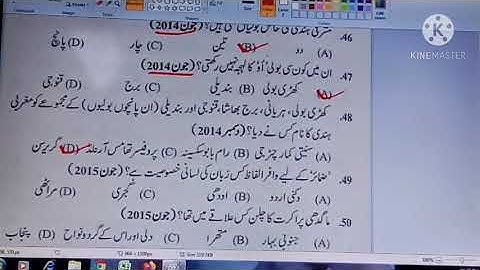 46. مغربی ہندی کی خاص بولیاں کتنی ہیں؟ (جون 2014)
(A) دو (B) تین (C) چار (D) پانچ
47. ان میں کون سی بولی 'اُو' کا لہجہ نہیں رکھتی؟ (جون 2014)
(A) کھڑی بولی (B) بندیلی (C) برج (D) قنوجی
48. کھڑی بولی، ہریانی، برج بھاشا، قنوجی اور بندیلی (ان پانچوں بولیوں) کے مجموعے کو مغربی
ہندی کا نام کس نے دیا؟ (دسمبر 2014)
(A) سنیتی کمار چٹرجی (B) رام بابو سکسینہ (C) پروفیسر تھامس آرنلڈ (D) گریرسن
49. 'ضمائر' کے لیے وافر الفاظ کس زبان کی لسانی خصوصیت ہے؟ (جون 2015)
(A) دکنی اردو (B) اودھی (C) گجری (D) مراٹھی
50. ماگدھی پراکرت کا چلن کس علاقے میں تھا؟ (جون 2015)
(A) جنوبی بہار (B) متھرا (C) دلی اور اس کے گرد و نواح (D) پنجاب
MADE WITH
KINEMASTER
100%